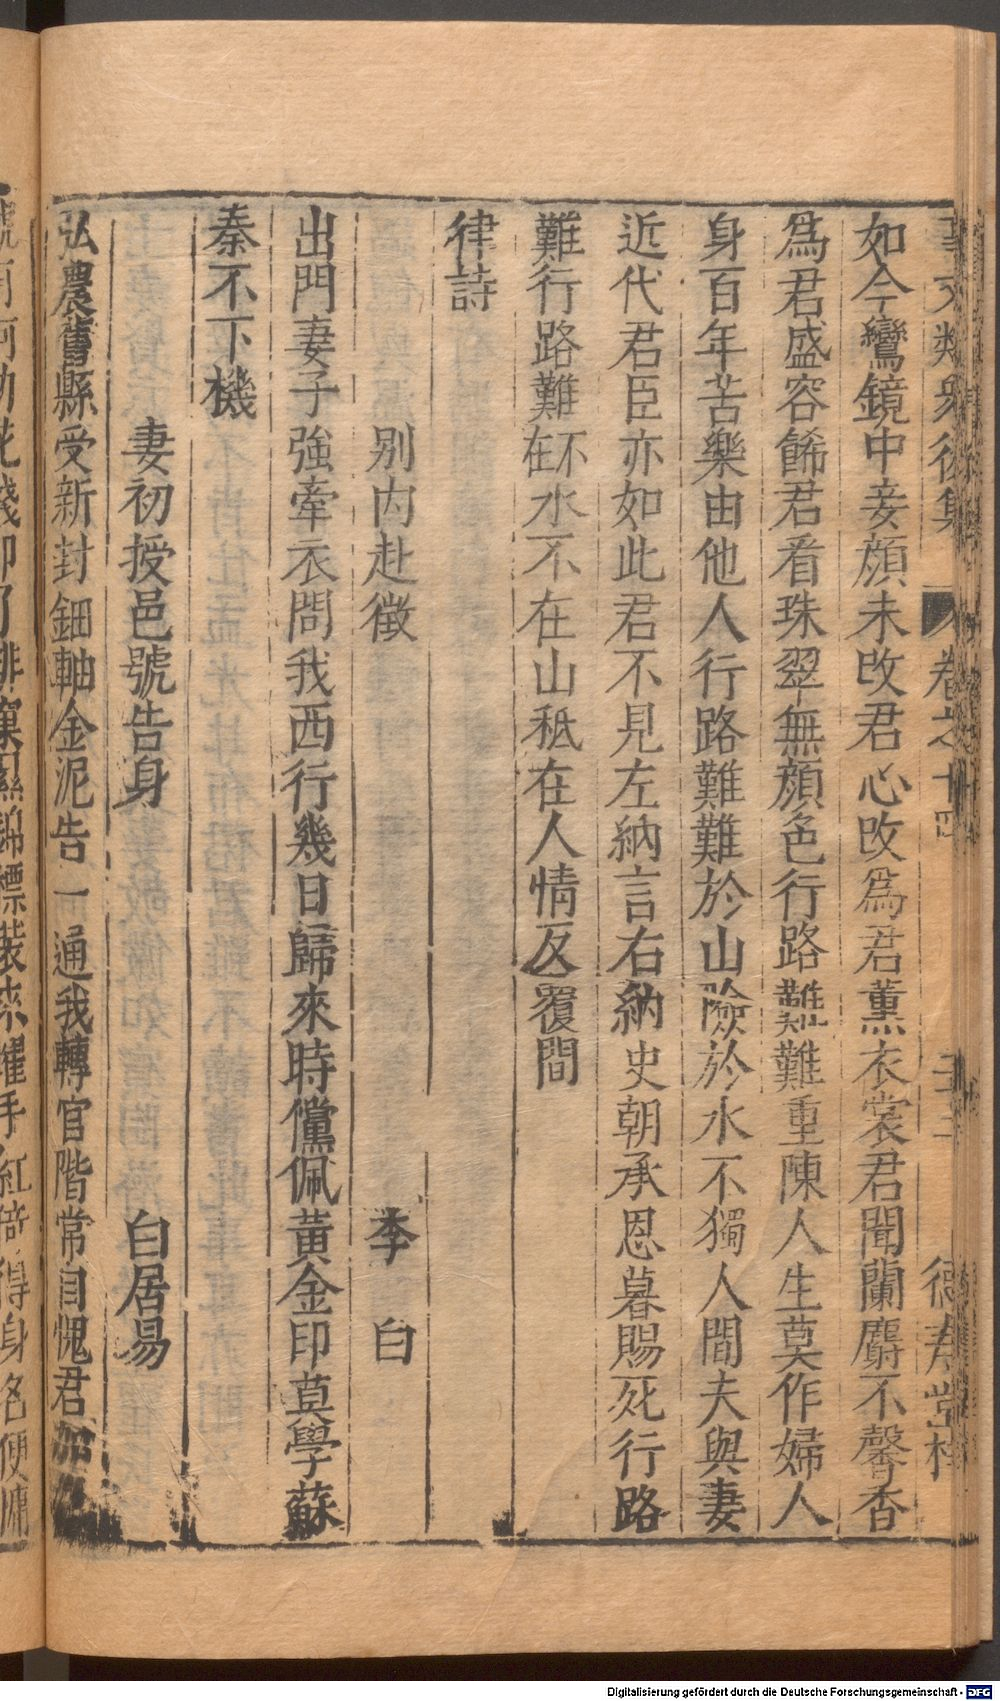 事文類聚後集 卷之十四 德壽堂梓
如今鸞鏡中妾顔未改君心改爲君薰衣裳君聞蘭麝不馨香
爲君盛容餙君看珠翠無顔色行路難難重陳人生莫作婦人
身百年苦樂由他人行路難難於山險於水不獨人間夫與妻
近代君臣亦如此君不見左納言右納史朝承恩暮賜死行路
難行路難不在水不在山秪在人情反覆間
律詩
别内赴徵 李白
出門妻子強牽衣問我西行幾日歸來時儻佩黃金印莫學蘇
秦不下機
妻初授邑號告身 白居易
弘農舊縣受新封鈿軸金泥告一通我轉官階常自愧君加
錦標裝來耀手紅倚得身名便慵
Digitalisierung gefördert durch die Deutsche Forschungsgemeinschaft - DFG